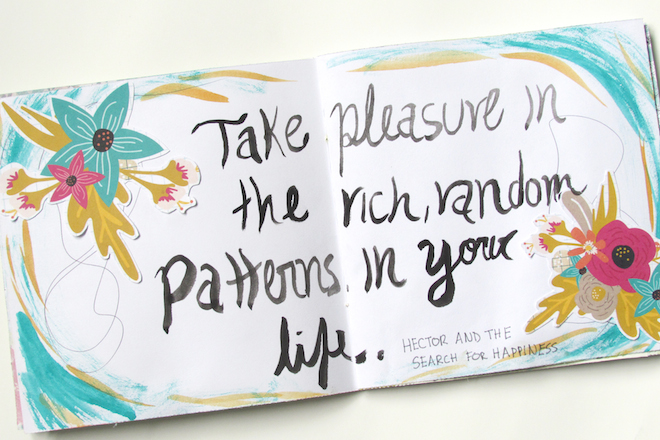 Take pleasure in
the rich, random
Patterns in your
life..
HECTOR AND THE
SEARCH FOR HAPPINESS